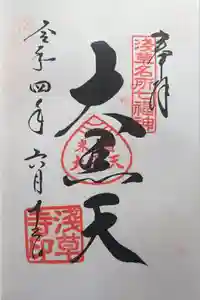 奉拝
浅草名所七福神
大黒天
令和四年六月十六日
浅草寺印